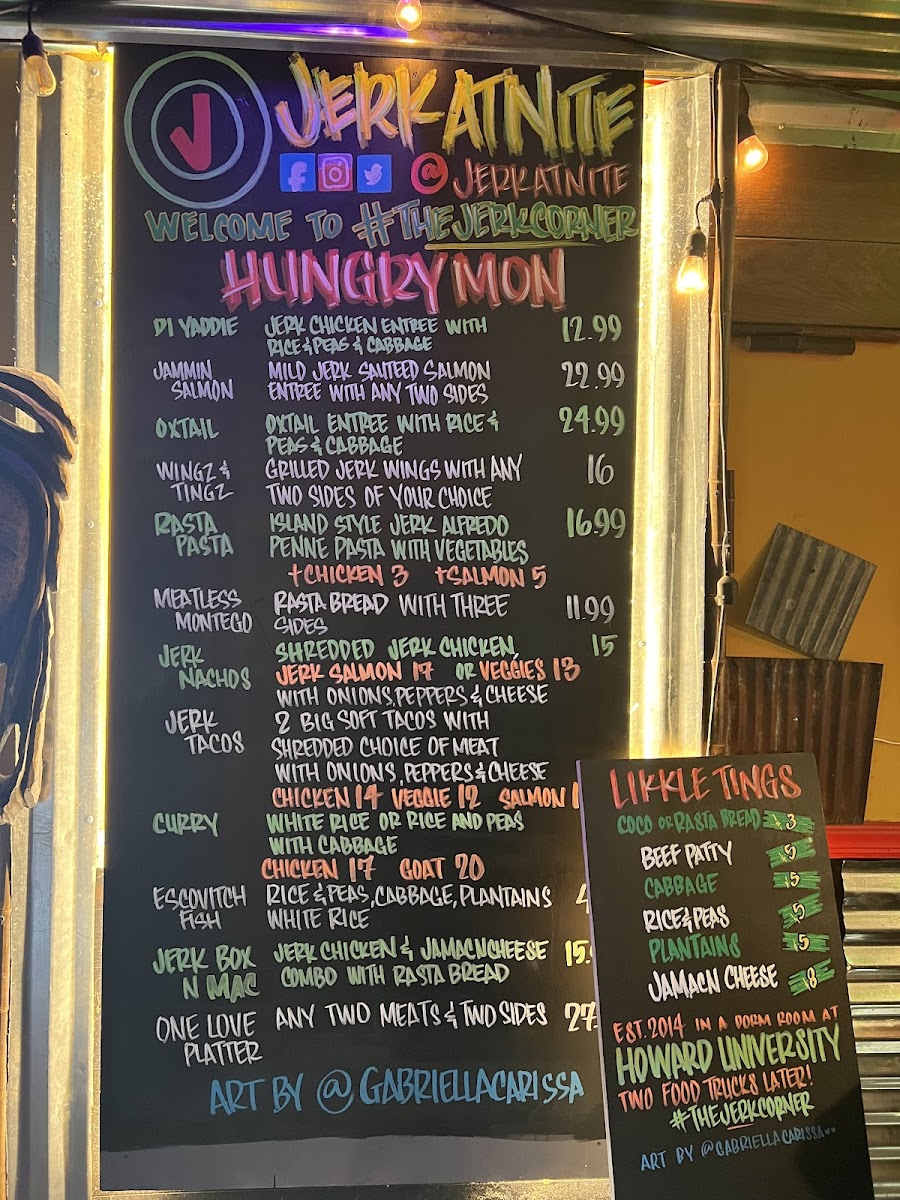 JERK ATNITE
@JERKATNITE
WELCOME TO #THEJERKCORNER
HUNGRY MON
DI YADDIE JERK CHICKEN ENTREE WITH 12.99
RICE & PEAS & CABBAGE
JAMMIN MILD JERK SAUTEED SALMON 22.99
SALMON ENTREE WITH ANY TWO SIDES
OXTAIL OXTAIL ENTREE WITH RICE & 24.99
PEAS & CABBAGE
WINGZ & GRILLED JERK WINGS WITH ANY 16
TINGZ TWO SIDES OF YOUR CHOICE
RASTA ISLAND STYLE JERK ALFREDO 16.99
PASTA PENNE PASTA WITH VEGETABLES
+CHICKEN 3 +SALMON 5
MEATLESS RASTA BREAD WITH THREE 11.99
MONTEGO SIDES
JERK SHREDDED JERK CHICKEN, 15
NACHOS JERK SALMON 17 OR VEGGIES 13
WITH ONIONS, PEPPERS & CHEESE
JERK 2 BIG SOFT TACOS WITH
TACOS SHREDDED CHOICE OF MEAT
WITH ONIONS, PEPPERS & CHEESE
CHICKEN 14 VEGGIE 12 SALMON
CURRY WHITE RICE OR RICE AND PEAS
WITH CABBAGE
CHICKEN 17 GOAT 20
ESCOVITCH RICE & PEAS, CABBAGE, PLANTAINS
FISH WHITE RICE
JERK BOX JERK CHICKEN & JAMACNCHEESE 15.
N MAC COMBO WITH RASTA BREAD
ONE LOVE ANY TWO MEATS & TWO SIDES 27.
PLATTER
ART BY @GABRIELLACARISSA
LIKKLE TINGS
COCO OR RASTA BREAD 3
BEEF PATTY 5
CABBAGE 5
RICE & PEAS 5
PLANTAINS 5
JAMACN CHEESE 8
EST. 2014 IN A DORM ROOM AT
HOWARD UNIVERSITY
TWO FOOD TRUCKS LATER!
#THEJERKCORNER
ART BY @GABRIELLACARISSA